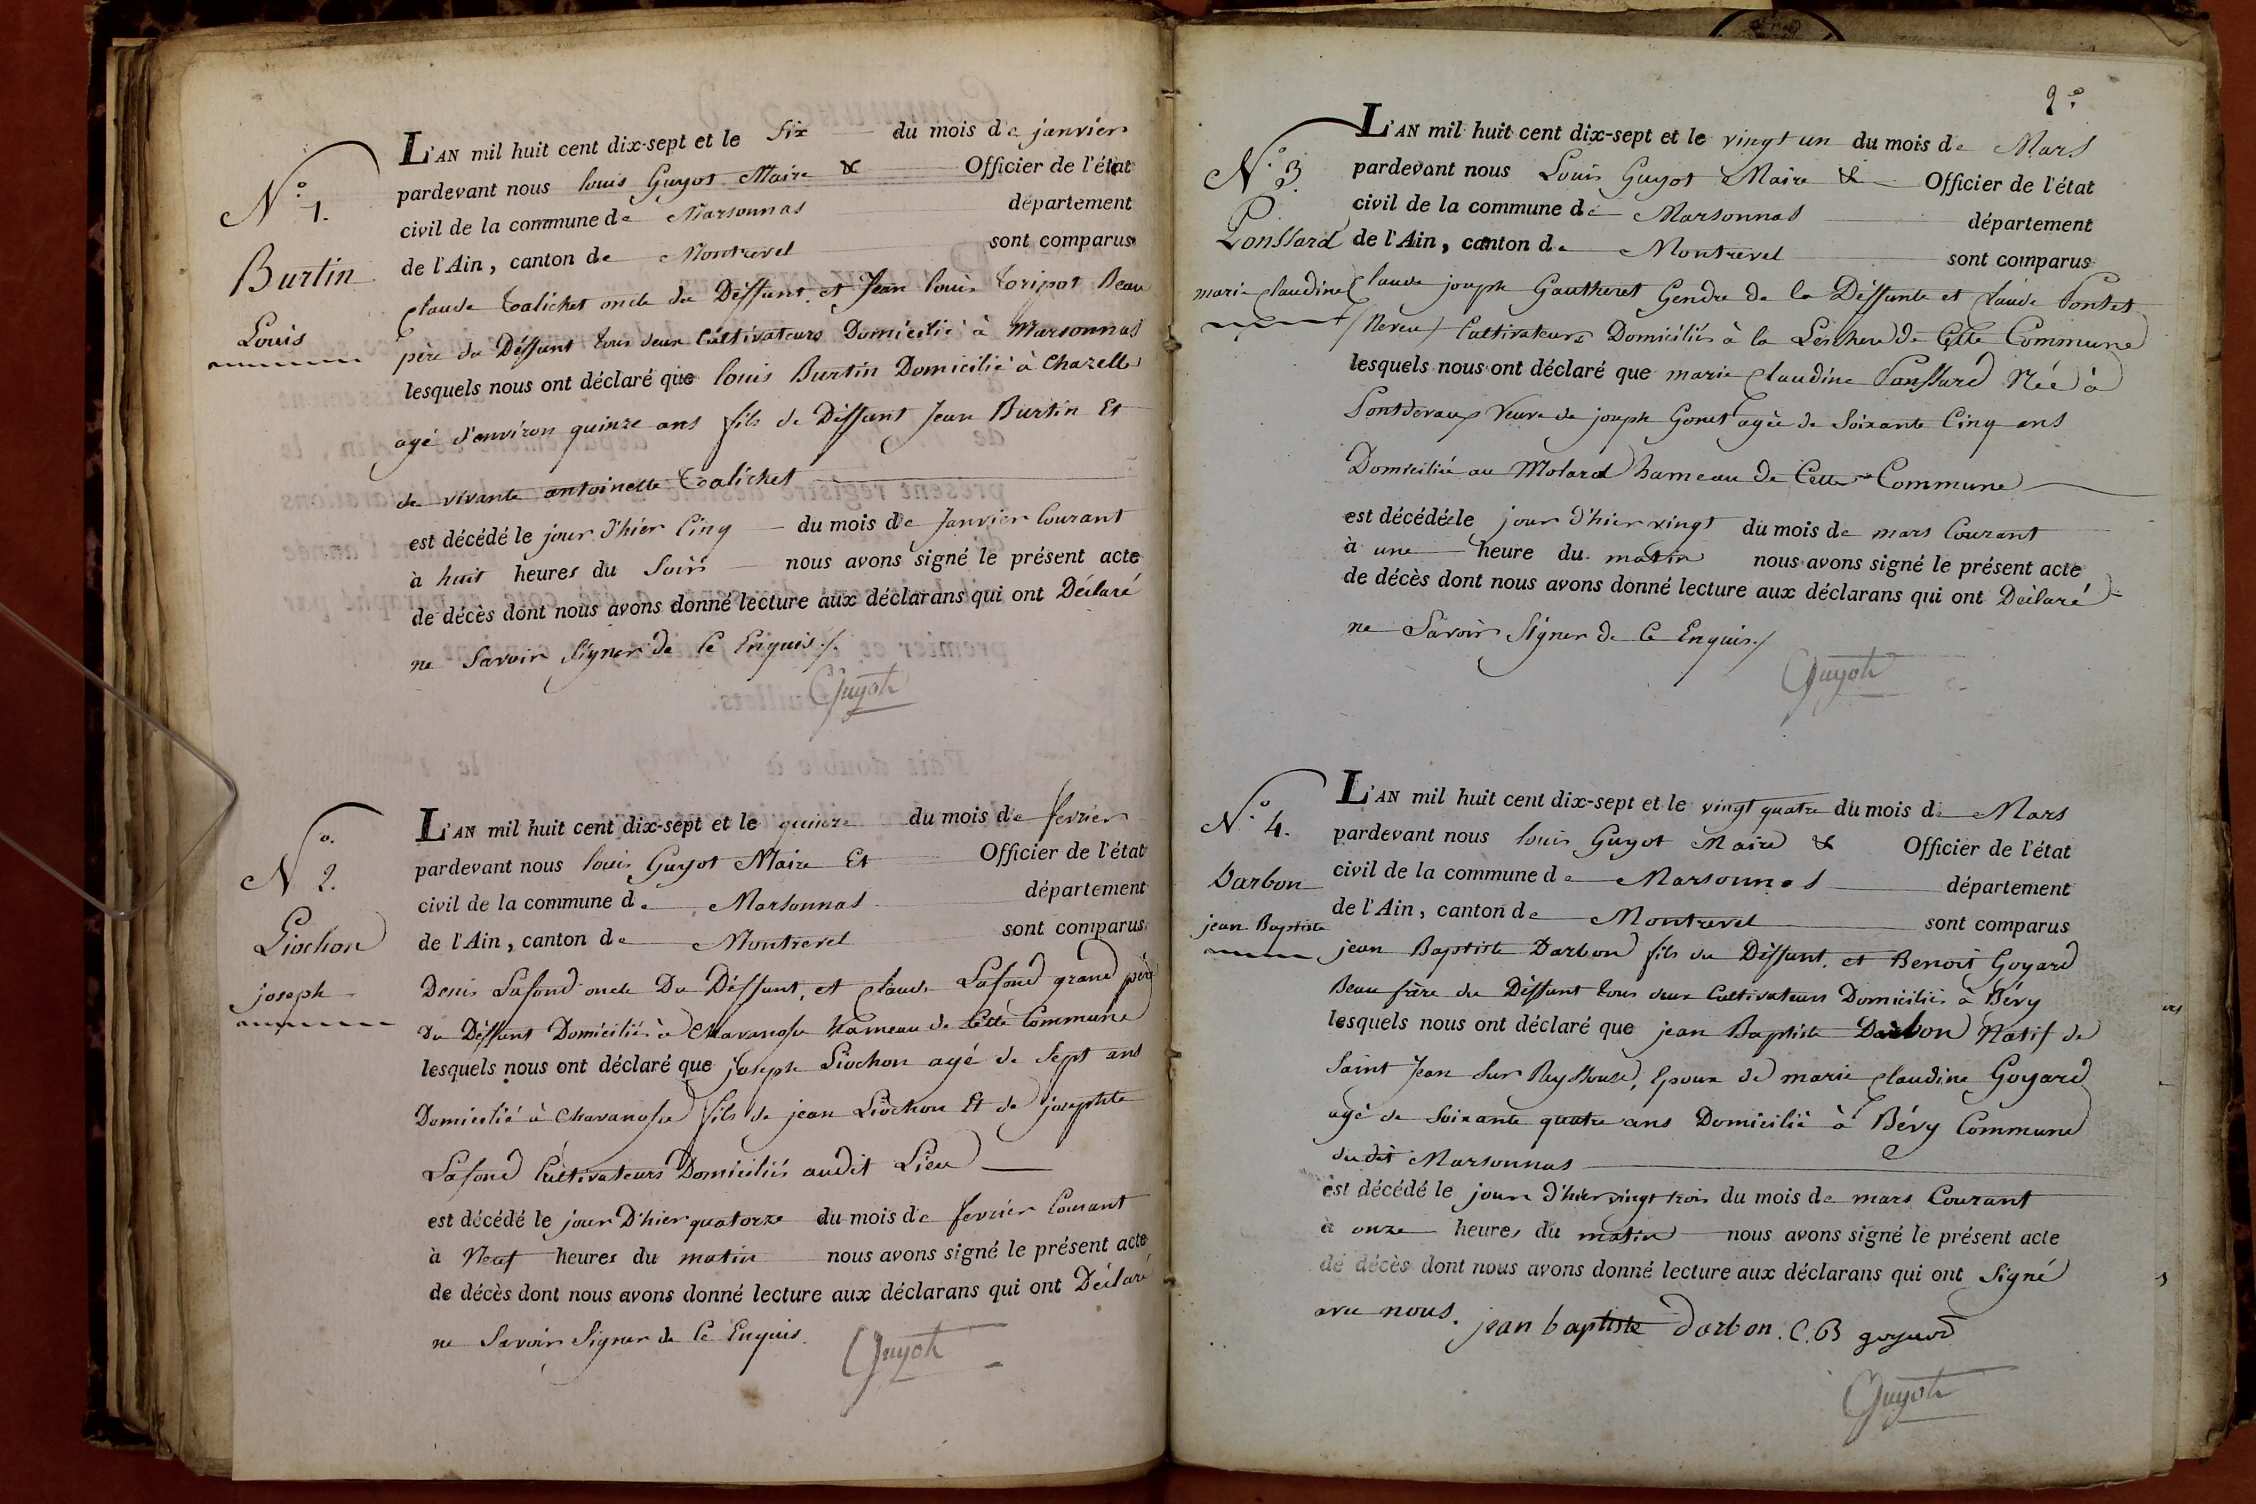 N.º 1.
Burtin
Louis
L'AN mil huit cent dix-sept et le six du mois de janvier
pardevant nous louis Guyot Maire & Officier de l'état
civil de la commune de Marsonnas département
de l'Ain, canton de Montrevel sont comparus
Claude Calichet oncle du Déffunt, et Jean louis Toripot Beau
père du Déffunt tous deux Cultivateurs Domicilié à Marsonnas
lesquels nous ont déclaré que louis Burtin Domicilié à Chazelle
agé d'environ quinze ans fils de Déffunt Jean Burtin Et
de vivante antoinette Calichet
est décédé le jour d'hier Cinq du mois de Janvier Courant
à huit heures du Soir nous avons signé le présent acte
de décès dont nous avons donné lecture aux déclarans qui ont Déclaré
ne Savoir Signer de Ce Enquis ./.
Guyot
N.º 2.
Liochon
joseph
L'AN mil huit cent dix-sept et le quinze du mois de fevrier
pardevant nous louis Guyot Maire Et Officier de l'état
civil de la commune de Marsonnas département
de l'Ain, canton de Montrevel sont comparus
Denis Lafond oncle Du Déffunt, et Claude Lafond grand père
du Déffunt Domiciliés à Chavanosse hameau de Cette Commune
lesquels nous ont déclaré que Joseph Liochon agé de Sept ans
Domicilié à Chavanosse fils de jean Liochon Et de josephte
Lafond Cultivateurs Domiciliés audit Lieu
est décédé le jour D'hier quatorze du mois de fevrier Courant
à Neuf heures du matin nous avons signé le présent acte
de décès dont nous avons donné lecture aux déclarans qui ont Déclaré
ne Savoir Signer de Ce Enquis.
Guyot
2.e
N.º 3.
Ponssard
marie Claudine
L'AN mil huit cent dix-sept et le vingt un du mois de Mars
pardevant nous Louis Guyot Maire & Officier de l'état
civil de la commune de Marsonnas département
de l'Ain, canton de Montrevel sont comparus
Claude joseph Gautheret Gendre de la Déffunte et Claude Pontet
(Neveu) Cultivateurs Domiciliés à la Leschere de Cette Commune
lesquels nous ont déclaré que marie Claudine Ponssard Née à
Pontdevaux Veuve de joseph Gonet agée de Soixante Cinq ans
Domiciliée au Molard hameau de Cette Commune
est décédée le jour d'hier vingt du mois de mars Courant
à une heure du matin nous avons signé le présent acte
de décès dont nous avons donné lecture aux déclarans qui ont Déclaré
ne Savoir Signer de Ce Enquis ./
Guyot
N.º 4.
Darbon
jean Baptiste
L'AN mil huit cent dix-sept et le vingt quatre du mois de Mars
pardevant nous louis Guyot Maire & Officier de l'état
civil de la commune de Marsonnas département
de l'Ain, canton de Montrevel sont comparus
jean Baptiste Darbon fils du Déffunt, et Benoit Goyard
Beau frère du Déffunt tous deux Cultivateurs Domiciliés à Bévy
lesquels nous ont déclaré que jean Baptiste Darbon Natif de
Saint Jean Sur Reyssouse, Epoux de marie Claudine Goyard
agé de Soixante quatre ans Domicilié à Bévy Commune
du dit Marsonnas
est décédé le jour d'hier vingt trois du mois de mars Courant
à onze heures du matin nous avons signé le présent acte
de décès dont nous avons donné lecture aux déclarans qui ont Signé
avec nous.
jean baptiste darbon. C. B goyard
Guyot